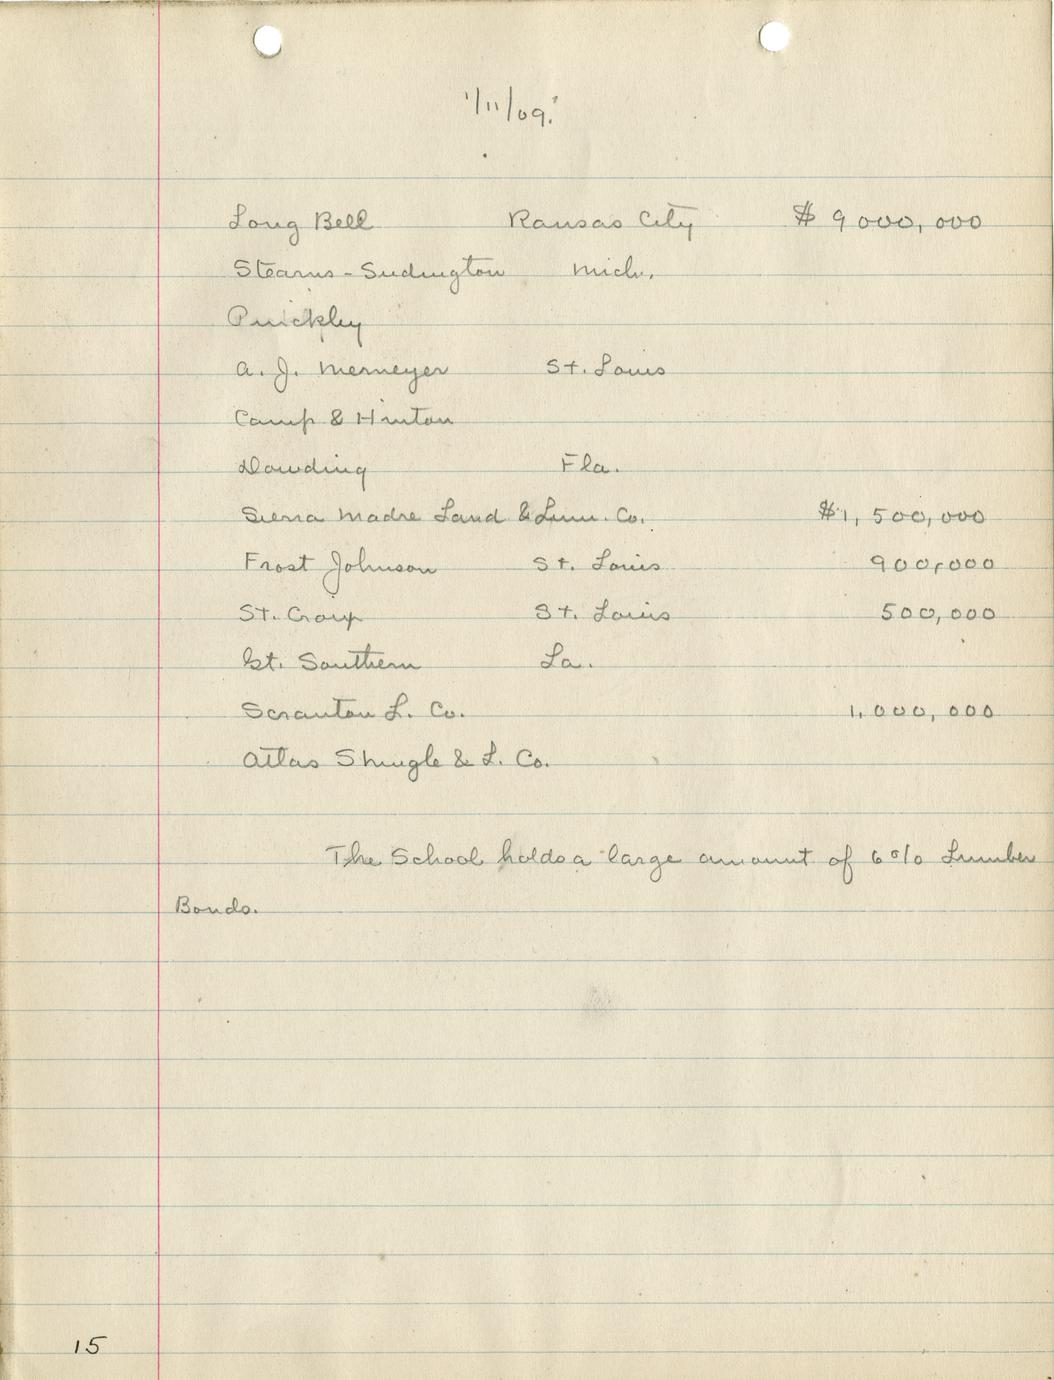 1/11/09.
Long Bell Kansas City $ 9000,000
Stearns - Ludington Mich.
A. J. Niemeyer St. Louis
Camp & Hinton
Dowling Fla.
Sierra Madre Land & Lum. Co. $1,500,000
Frost Johnson St. Louis 900,000
St. Croix St. Louis 500,000
Gt. Southern La.
Scranton L. Co. 1,000,000
Atlas Shingle & L. Co.
The School holds a large amount of 6% Lumber
Bonds.
15